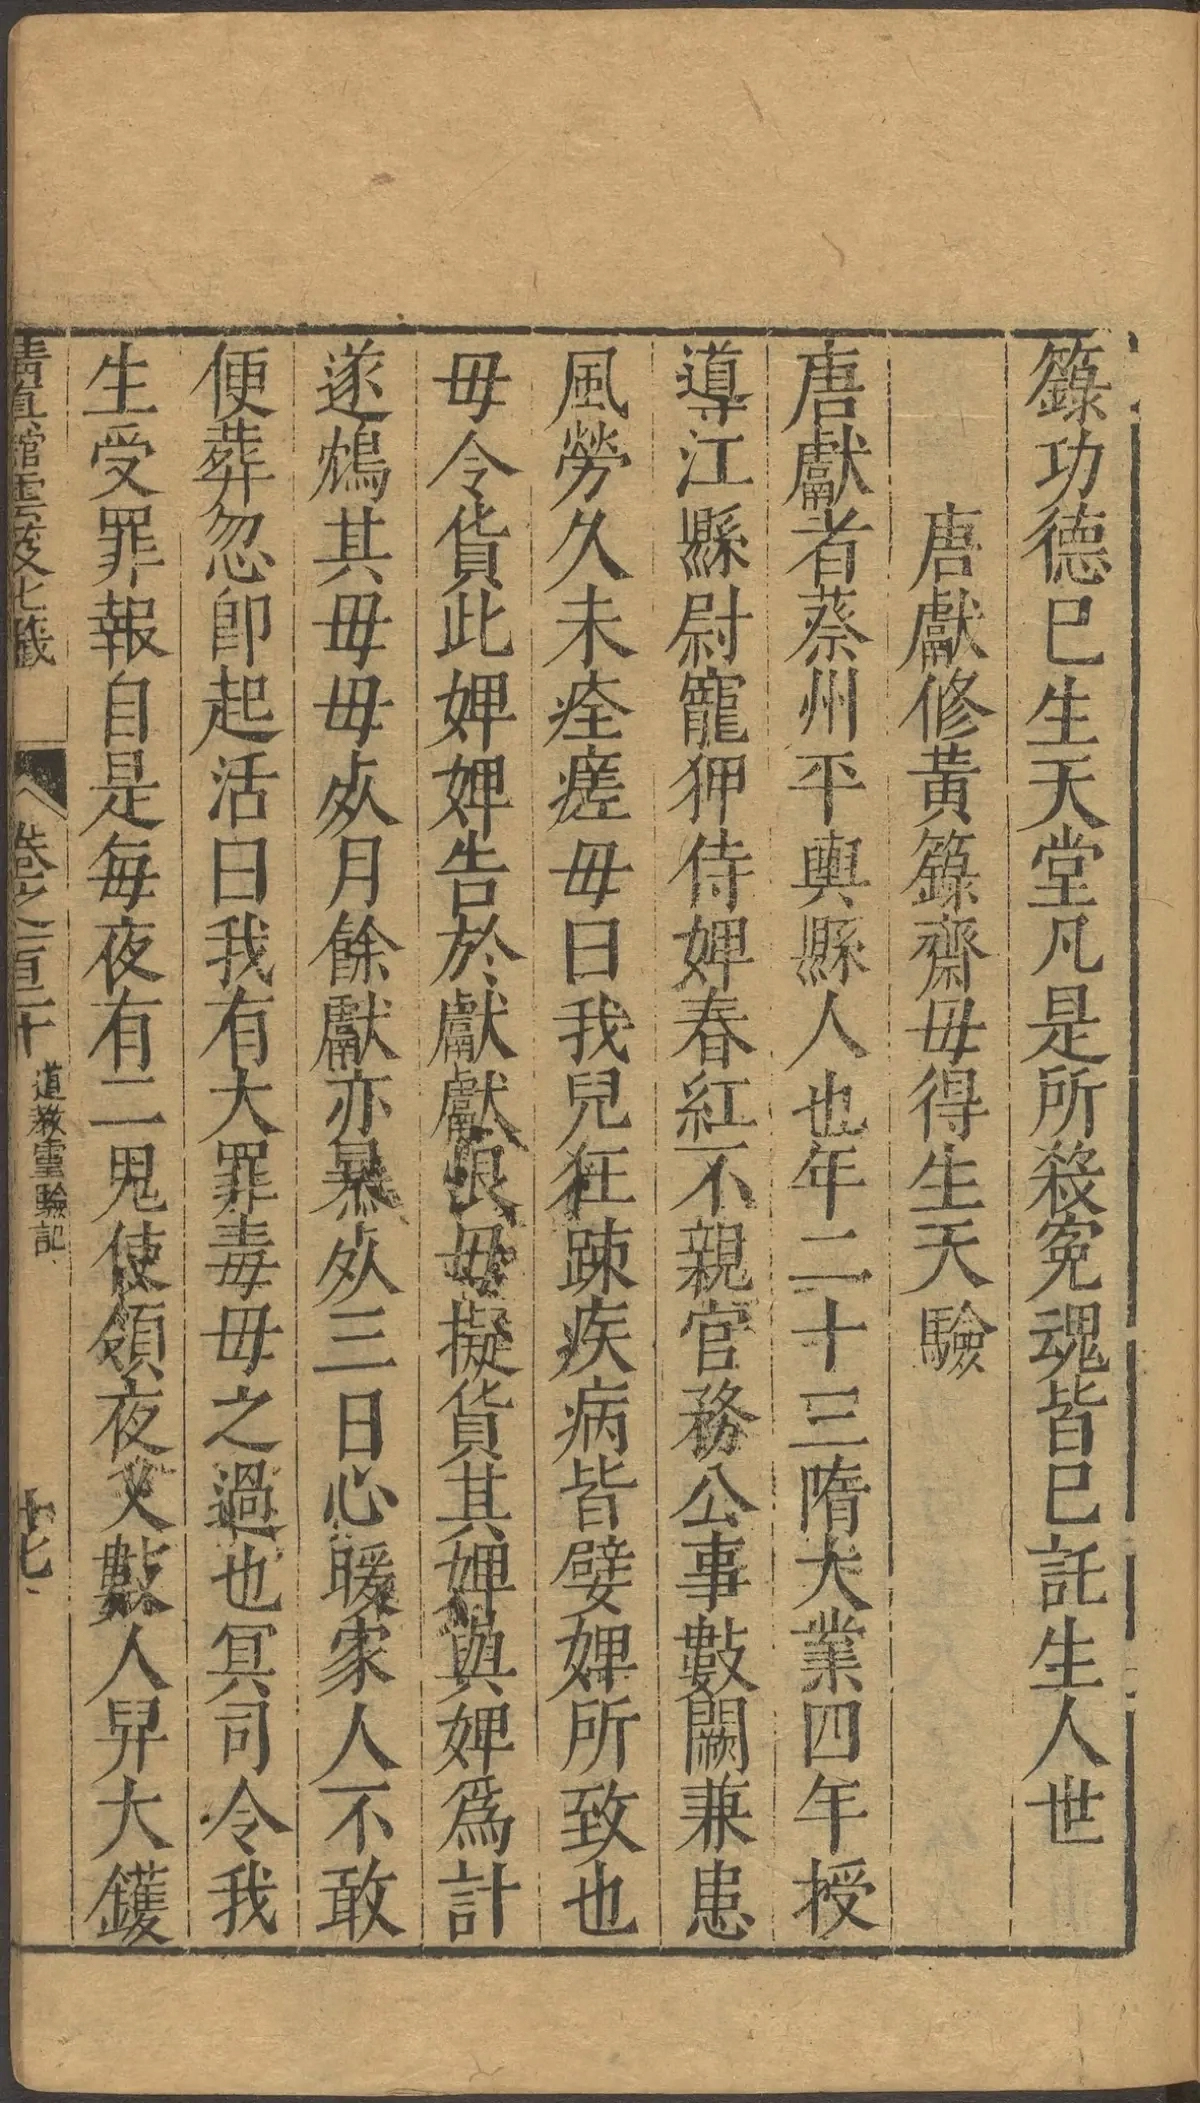 籙功德已生天堂凡是所殺冤魂皆已託生人世
唐獻修黃籙齋毋得生天驗
唐獻者蔡州平輿縣人也年二十三隋大業四年授
導江縣尉寵狎侍婢春紅不親官務公事數闕兼患
風勞久未痊瘥毋曰我兒狂疎疾病皆嬖婢所致也
毋令貨此婢婢告於獻獻恨毋擬貨其婢與婢爲計
遂鴆其毋毋死月餘獻亦暴死三日心暖家人不敢
便葬忽卽起活曰我有大罪毒毋之過也冥司令我
生受罪報自是每夜有二鬼使領夜叉數人舁大鑊
清真館雲笈七籤
卷之一百二十
道教靈驗記
十七